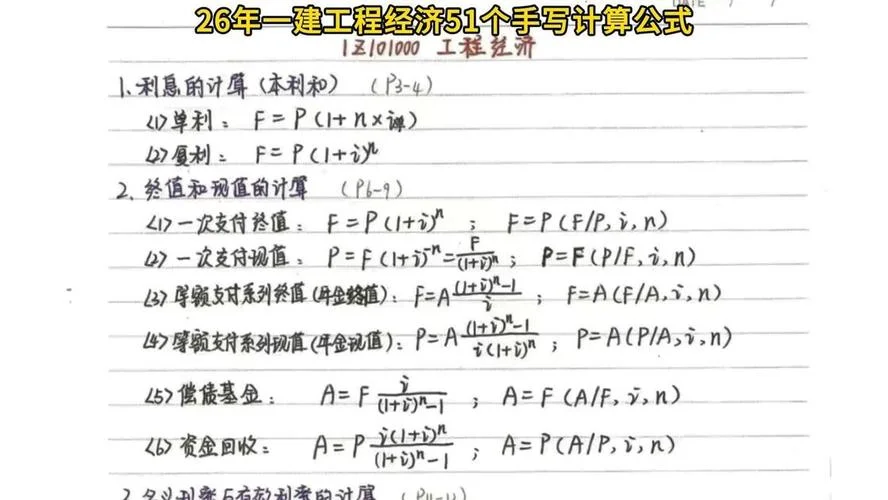 DATE / /
26年一建工程经济51个手写计算公式
1Z101000 工程经济
1、利息的计算（本利和） （P3-4）
<1>单利： F=P(1+n×i单)
<2>复利： F=P(1+i)^n
2、终值和现值的计算 （P6-9）
<1>一次支付终值： F=P(1+i)^n ； F=P(F/P,i,n)
<2>一次支付现值： P=F(1+i)^-n=F/(1+i)^n ； P=F(P/F,i,n)
<3>等额支付系列终值(年金终值)： F=A((1+i)^n-1)/i ； F=A(F/A,i,n)
<4>等额支付系列现值(年金现值)： P=A((1+i)^n-1)/(i(1+i)^n) ； P=A(P/A,i,n)
<5>偿债基金： A=F i/((1+i)^n-1) ； A=F(A/F,i,n)
<6>资金回收： A=P (i(1+i)^n)/((1+i)^n-1) ； A=P(A/P,i,n)
3 名义利率与有效利率的计算 （P11-12）